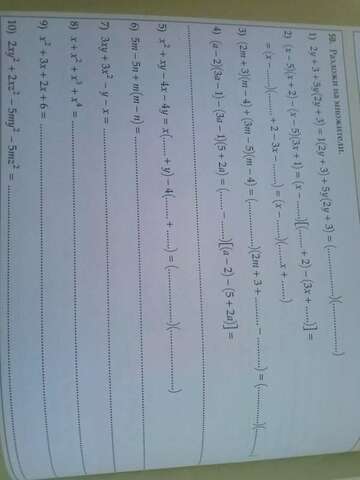 50. Разложи на множители.
1) 2y + 3 + 5y(2y + 3) = 1(2y + 3) + 5y(2y + 3) = (............)(............)
2) (x − 5)(x + 2) − (x − 5)(3x + 1) = (x − ......)[(...... + 2) − (3x + ......)] =
= (x − ......)(...... + 2 − 3x − ......) = (x − ......)(......x + ......)
3) (2m + 3)(m − 4) + (3m − 5)(m − 4) = (............)(2m + 3 + ...... − ......) = (............)(......
4) (a − 2)(3a − 1) − (3a − 1)(5 + 2a) = (...... − ......)[(a − 2) − (5 + 2a)] =
............
5) x² + xy − 4x − 4y = x(...... + y) − 4(...... + ......) = (............)(............)
6) 5m − 5n + m(m − n) = ............
7) 3xy + 3x² − y − x = ............
8) x + x² + x³ + x⁴ = ............
9) x³ + 3x + 2x + 6 = ............
10) 2xy² + 2xz² − 5my² − 5mz² = ............